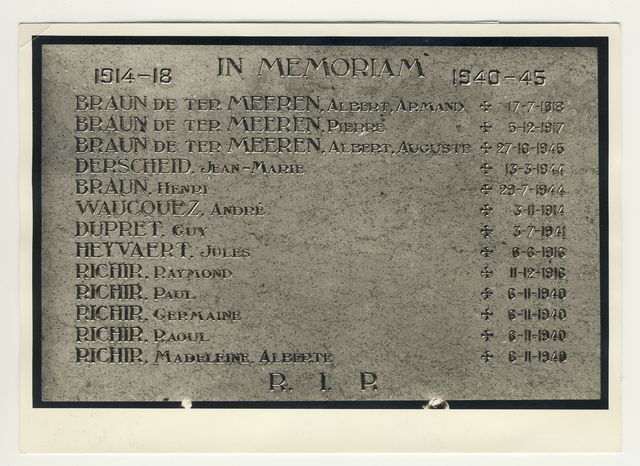 1914-18 IN MEMORIAM 1940-45
BRAUN DE TER MEEREN, ALBERT, ARMAND ✠ 17-7-1918
BRAUN DE TER MEEREN, PIERRE ✠ 5-12-1917
BRAUN DE TER MEEREN, ALBERT, AUGUSTE ✠ 27-16-1945
DERSCHEID, JEAN-MARIE ✠ 13-3-1944
BRAUN, HENRI ✠ 29-7-1944
WAUCQUEZ, ANDRÉ ✠ 3-11-1914
DUPRET, GUY ✠ 3-7-1941
HEYVAERT, JULES ✠ 6-6-1916
RICHIR, RAYMOND ✠ 11-12-1916
RICHIR, PAUL ✠ 6-11-1940
RICHIR, GERMAINE ✠ 6-11-1940
RICHIR, RAOUL ✠ 6-11-1940
RICHIR, MADELEINE, ALBERTE ✠ 6-11-1940
R. I. P.